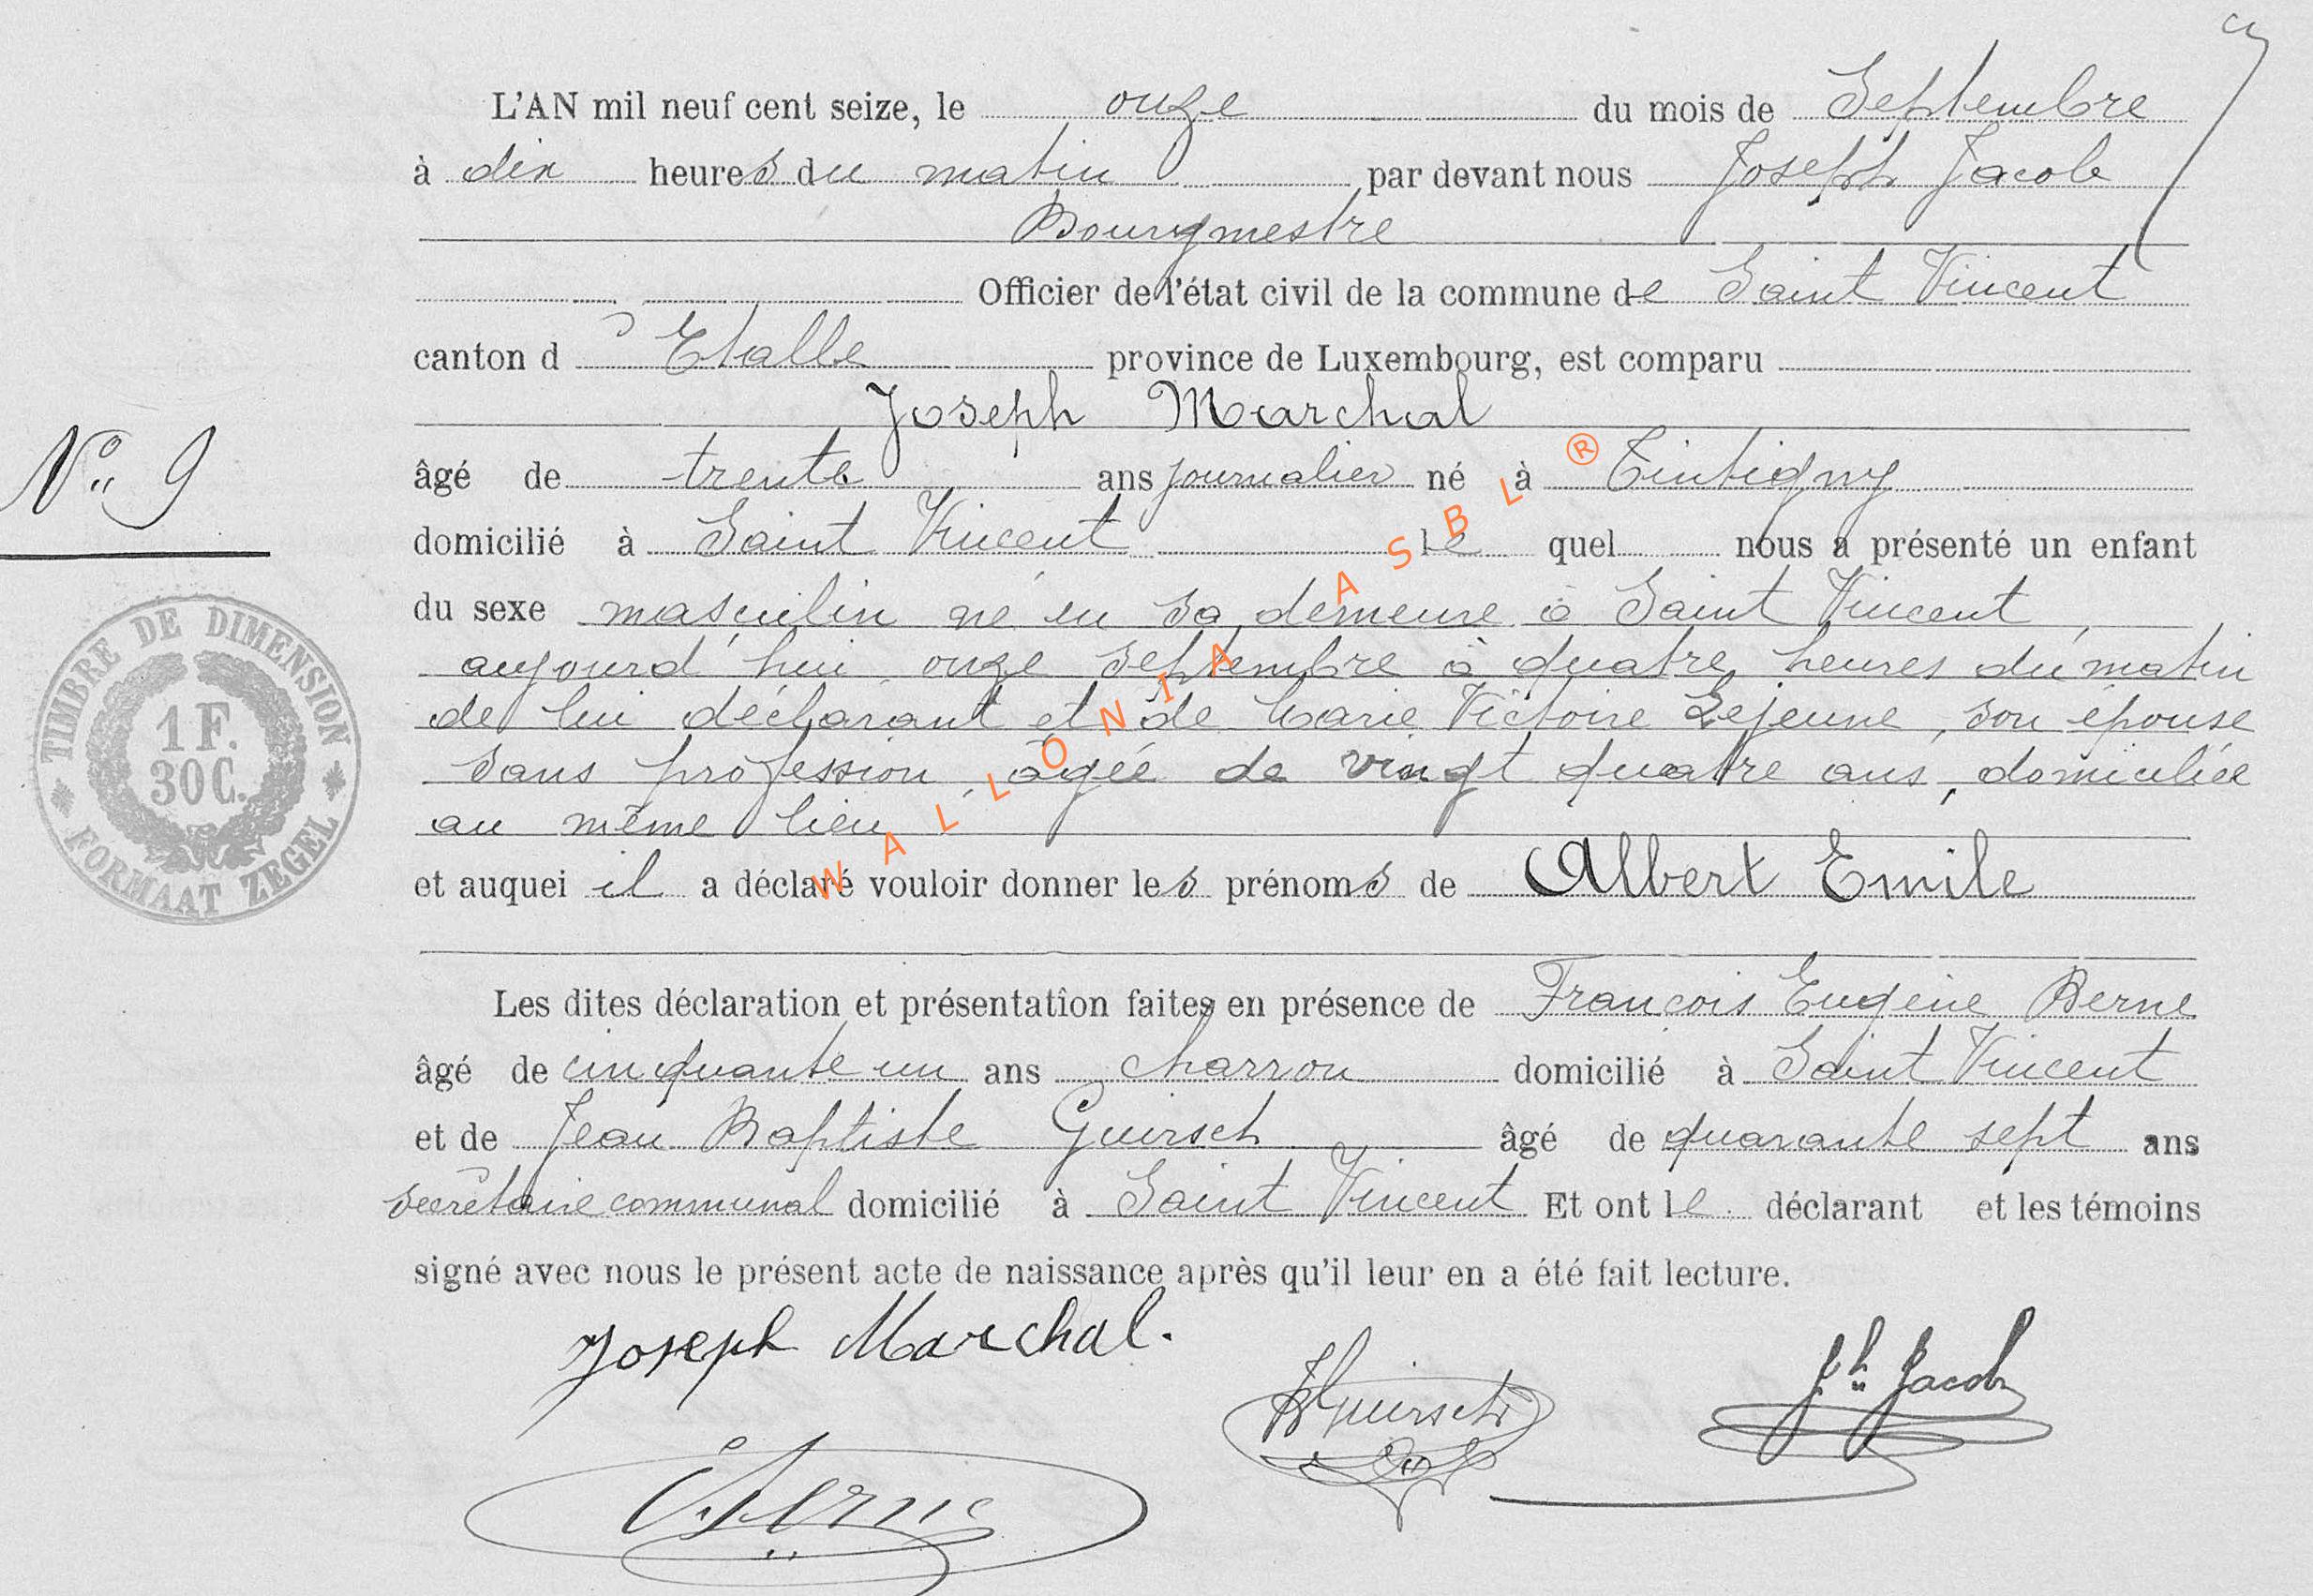 L'AN mil neuf cent seize, le onze du mois de Septembre
à dix heures du matin par devant nous Joseph Jacob
Bourgmestre
Officier de l'état civil de la commune de Saint Vincent
canton d' Etalle province de Luxembourg, est comparu
Joseph Marchal
âgé de trente ans journalier né à Tintigny
N° 9
domicilié à Saint Vincent lequel nous a présenté un enfant
du sexe masculin né en sa demeure à Saint Vincent,
aujourd'hui onze septembre à quatre heures du matin
de lui déclarant et de Marie Victoire Lejeune, son épouse
sans profession, âgée de vingt quatre ans, domiciliée
au même lieu
et auquel il a déclaré vouloir donner les prénoms de Albert Emile
Les dites déclaration et présentation faites en présence de François Eugène Berne
âgé de cinquante un ans charron domicilié à Saint Vincent
et de Jean Baptiste Guirsch âgé de quarante sept ans
secrétaire communal domicilié à Saint Vincent Et ont le déclarant et les témoins
signé avec nous le présent acte de naissance après qu'il leur en a été fait lecture.
Joseph Marchal.
JBGuirsch
Jh Jacob
EBerne
TIMBRE DE DIMENSION
1 F.
30 C.
FORMAAT ZEGEL
WALLONIA ASBL ®